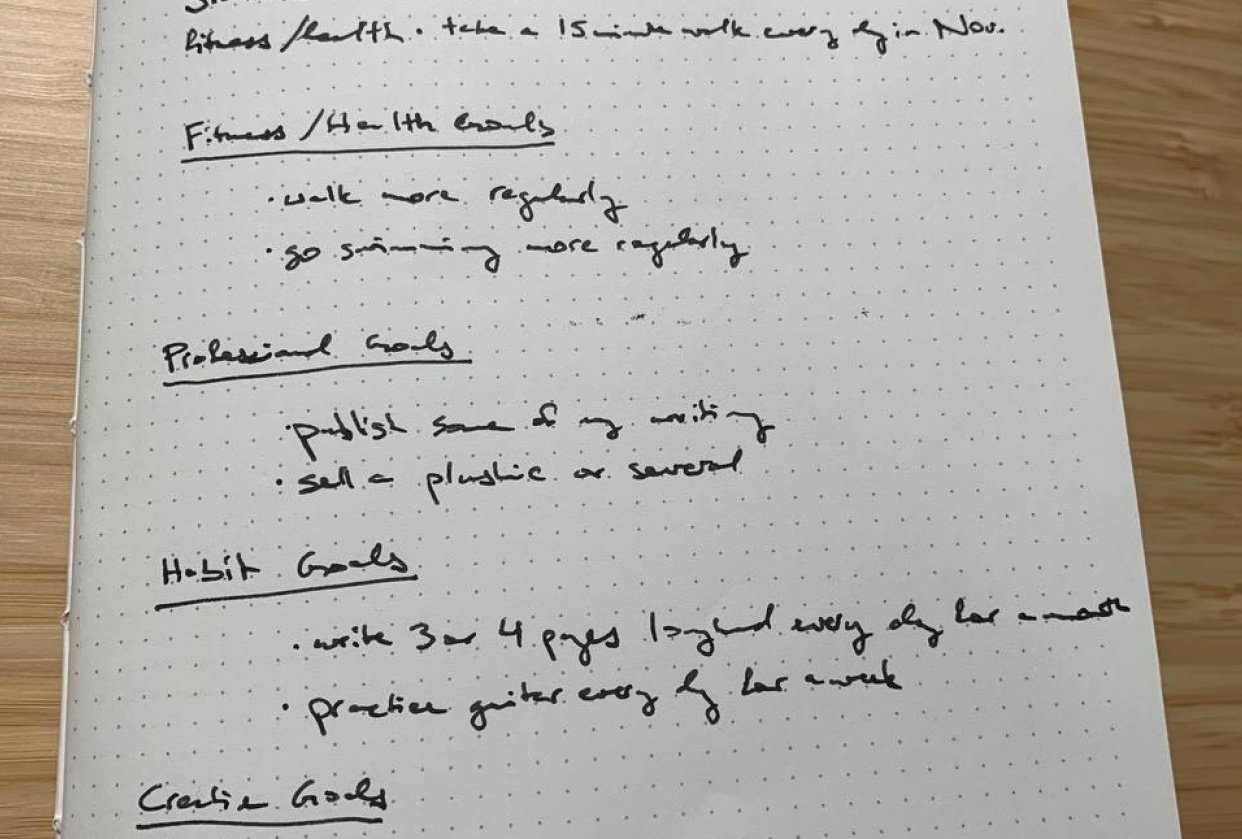 fitness/health. take a 15 minute walk every day in Nov.
Fitness/Health Goals
· walk more regularly
· go swimming more regularly
Professional Goals
· publish some of my writing
· sell a plushie or several
Habit Goals
· write 3 or 4 pages longhand every day for a month
· practice guitar every day for a week
Creative Goals